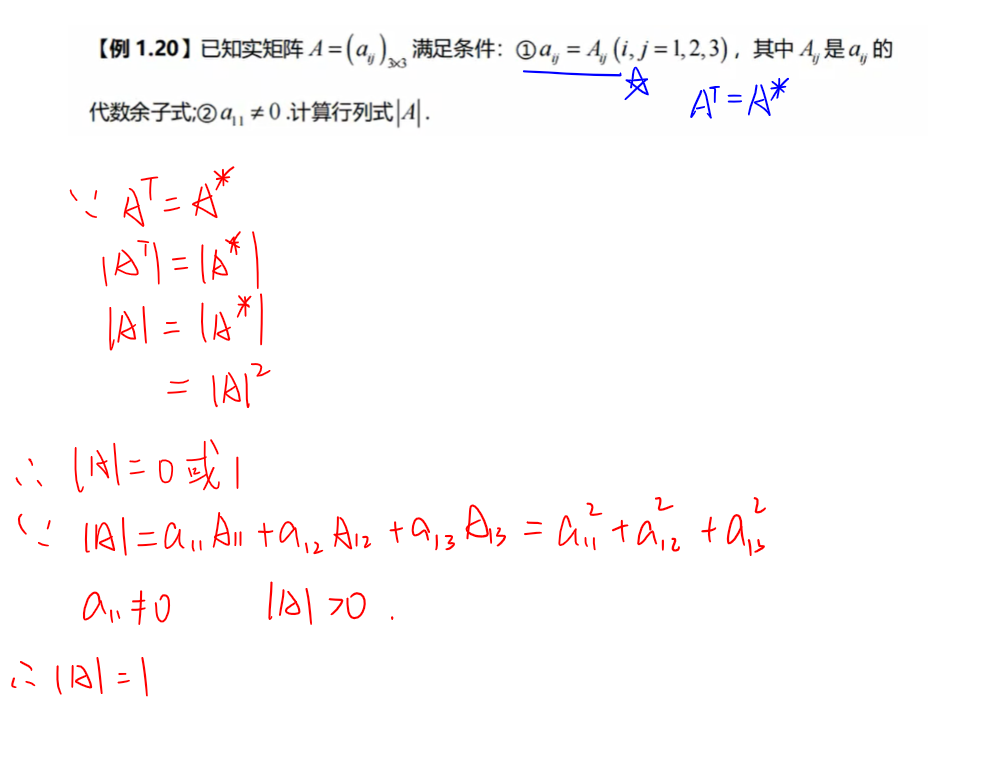 【例 1.20】已知实矩阵 A=(a_{ij})_{3×3} 满足条件：①a_{ij} = A_{ij} (i, j = 1, 2, 3)，其中 A_{ij} 是 a_{ij} 的
☆ A^T = A^*
代数余子式;②a_{11} ≠ 0 .计算行列式|A| .
∵ A^T = A^*
|A^T| = |A^*|
|A| = |A^*|
= |A|^2
∴ |A| = 0 或 1
∵ |A| = a_{11} A_{11} + a_{12} A_{12} + a_{13} A_{13} = a_{11}^2 + a_{12}^2 + a_{13}^2
a_{11} ≠ 0 |A| > 0 .
∴ |A| = 1